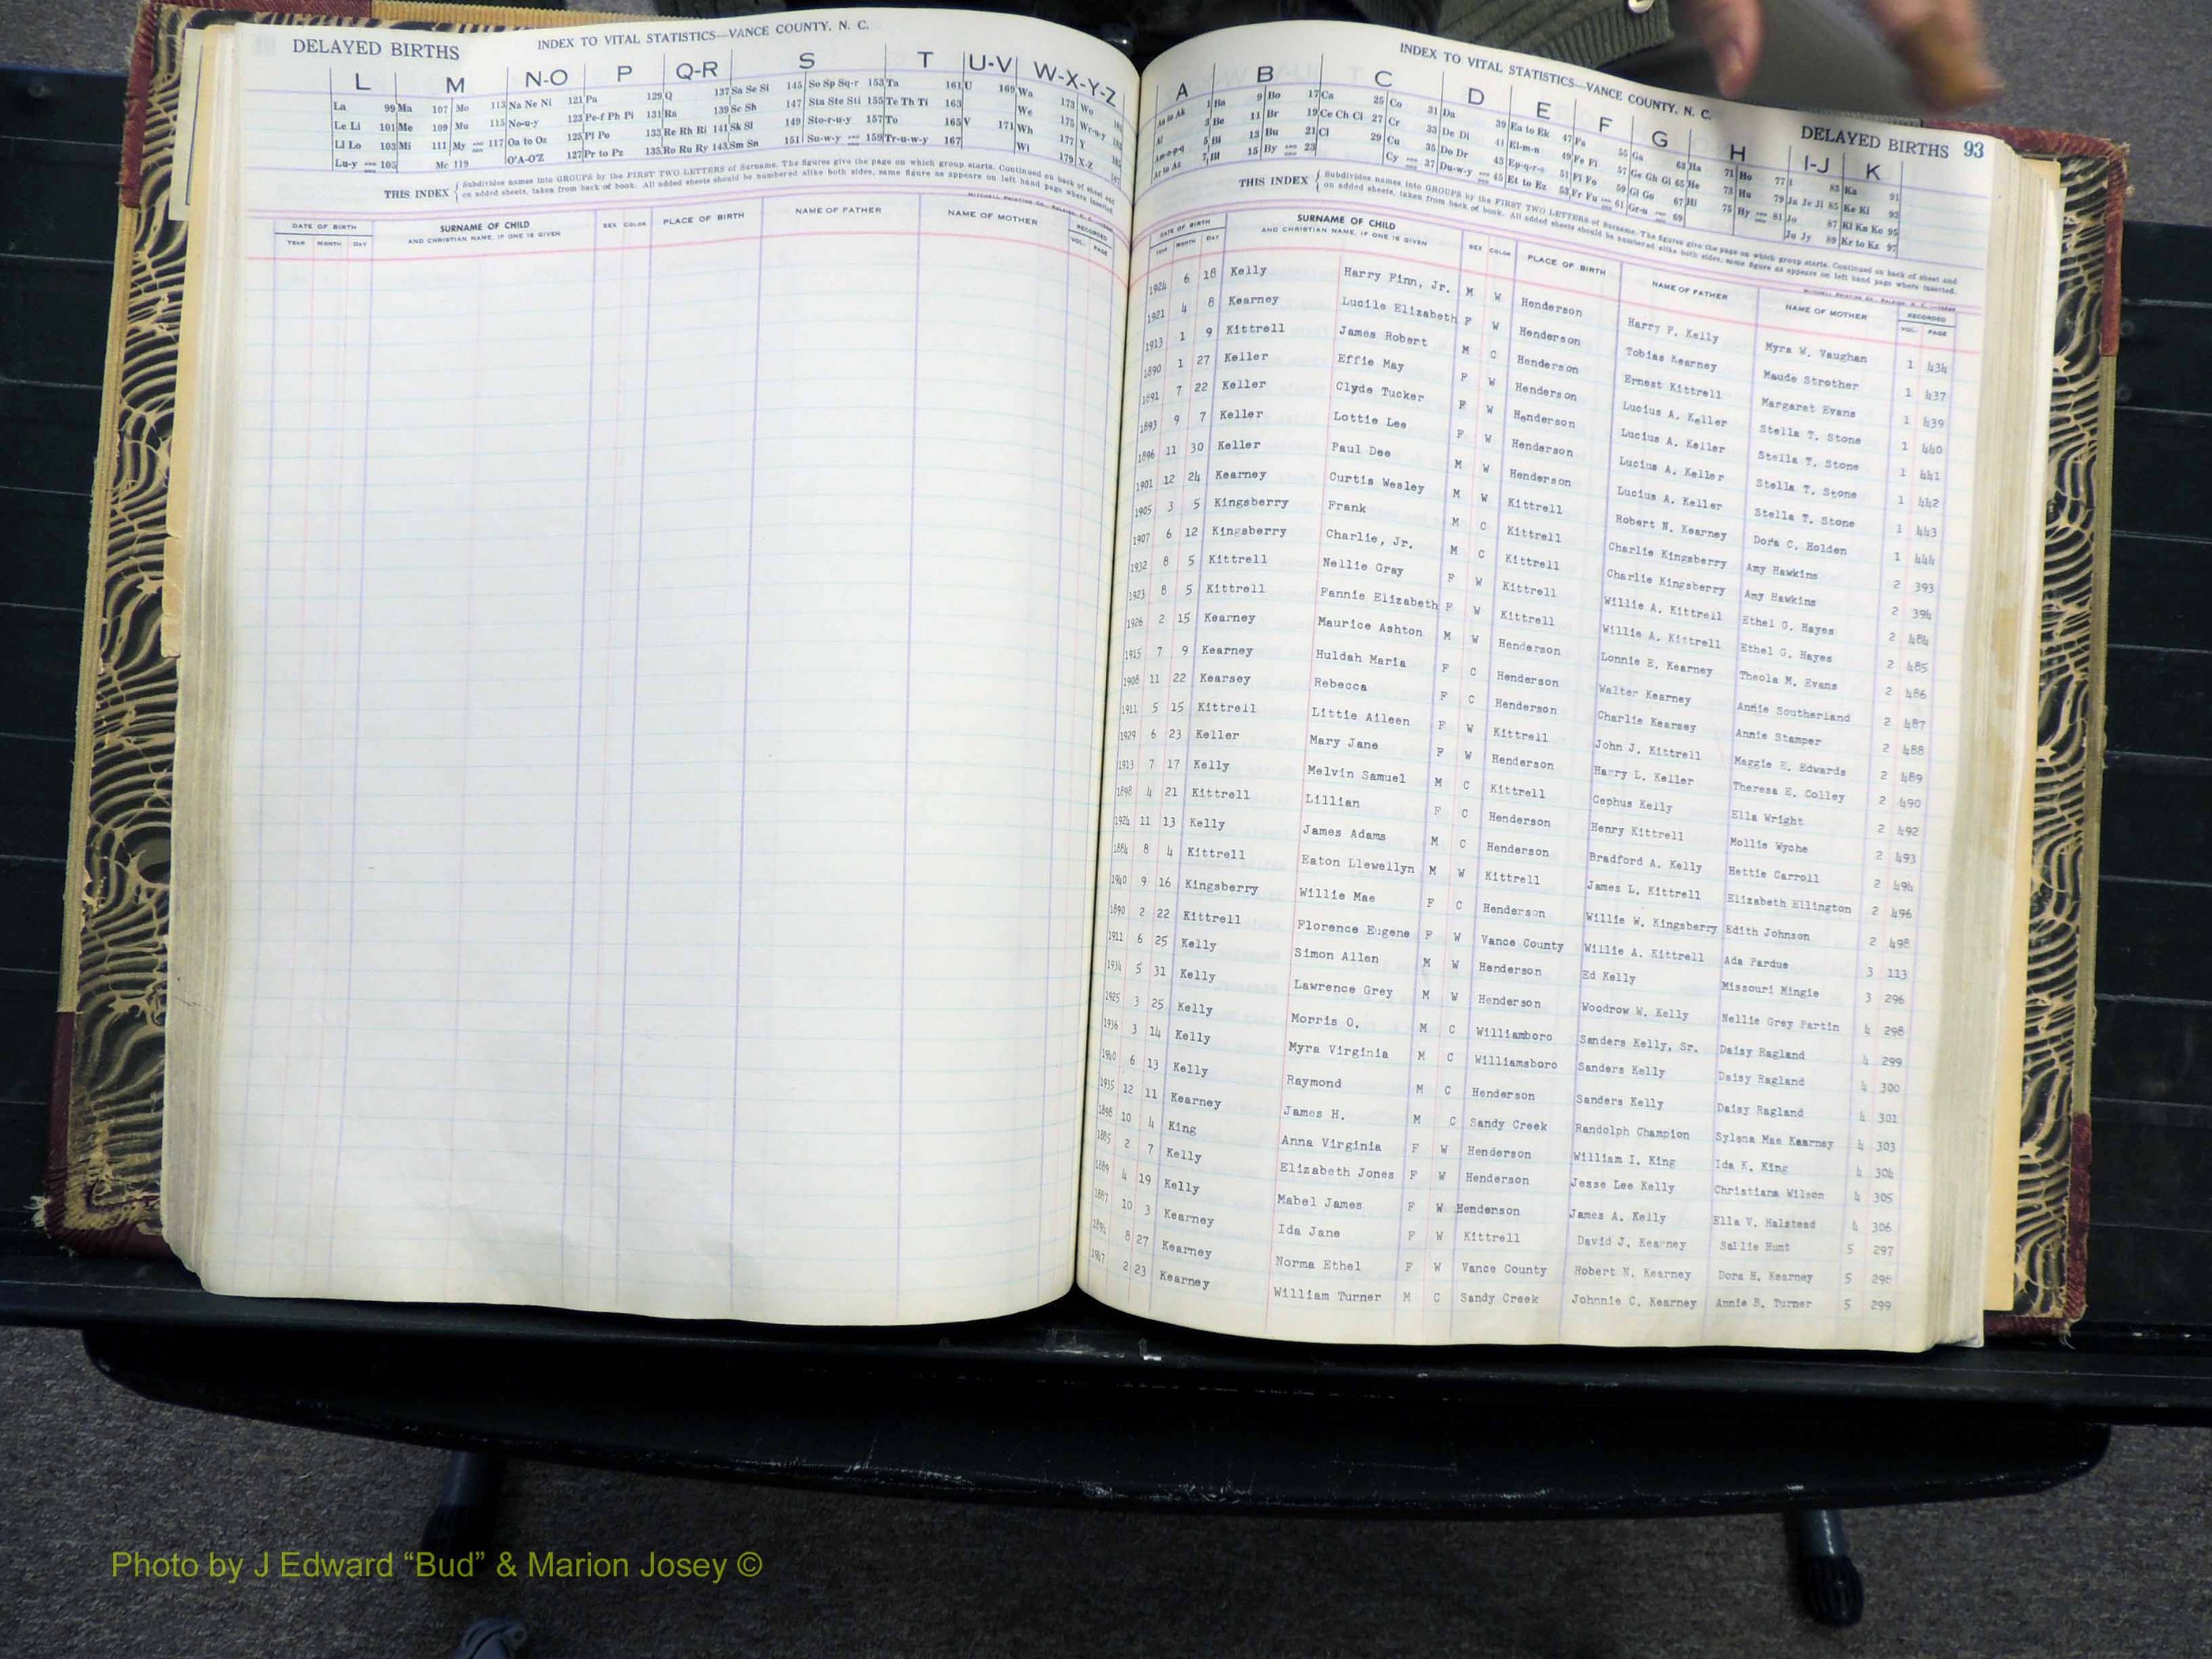 DELAYED BIRTHS
INDEX TO VITAL STATISTICS—VANCE COUNTY, N. C.
L M N-O P Q-R S T U-V W-X-Y-Z
La 99 Ma 107 Mo 113 Na Ne Ni 121 Pa 129 Q 137 Sa Se Si 145 So Sp Sq-r 153 Ta 161 U 169 Wa 173 Wo
Le Li 101 Me 109 Mu 115 No-u-y 123 Pe-f Ph Pi 131 Ra 139 Sc Sh 147 Sta Ste Sti 155 Te Th Ti 163 We 175 Wr-u-y
Ll Lo 103 Mi 111 My AND 117 On to Oz 125 Pl Po 133 Re Rh Ri 141 Sk Sl 149 Sto-r-u-y 157 To 165 V 171 Wh 177 Y
Lu-y AND 105 Mc 119 O'A-O'Z 127 Pr to Pz 135 Ro Ru Ry 143 Sm Sn 151 Su-w-y AND 159 Tr-u-w-y 167 Wi 179 X-Z
THIS INDEX { Subdivides names into GROUPS by the FIRST TWO LETTERS of Surname. The figures give the page on which group starts. Continued on back of sheet and
on added sheets, taken from back of book. All added sheets should be numbered alike both sides, same figure as appears on left hand page where inserted.
DATE OF BIRTH SURNAME OF CHILD SEX COLOR PLACE OF BIRTH NAME OF FATHER NAME OF MOTHER RECORDED
YEAR MONTH DAY AND CHRISTIAN NAME, IF ONE IS GIVEN VOL. PAGE
INDEX TO VITAL STATISTICS—VANCE COUNTY, N. C.
DELAYED BIRTHS 93
A B C D E F G H I-J K
Aa to Ak 1 Ba 9 Bo 17 Ca 25 Co 31 Da 39 Ea to Ek 47 Fa 55 Ga 63 Ha 71 Ho 77 I 83 Ka 91
Al 3 Be 11 Br 19 Ce Ch Ci 27 Cr 33 De Di 41 El-m-n 49 Fe Fi 57 Ge Gh Gi 65 He 73 Hu 79 Ja Je Ji 85 Ke Ki 93
Am-n-p-q 5 Bi 13 Bu 21 Cl 29 Cu 35 Do Dr 43 Ep-q-r-s 51 Fl Fo 59 Gl Go 67 Hi 75 Hy AND 81 Jo 87 Kl Kn Ko 95
Ar to Az 7 Bl 15 By AND 23 Cy AND 37 Du-w-y AND 45 Et to Ez 53 Fr Fu AND 61 Gr-u AND 69 Ju Jy 89 Kr to Kz 97
THIS INDEX { Subdivides names into GROUPS by the FIRST TWO LETTERS of Surname. The figures give the page on which group starts. Continued on back of sheet and
on added sheets, taken from back of book. All added sheets should be numbered alike both sides, same figure as appears on left hand page where inserted.
DATE OF BIRTH SURNAME OF CHILD SEX COLOR PLACE OF BIRTH NAME OF FATHER NAME OF MOTHER RECORDED
YEAR MONTH DAY AND CHRISTIAN NAME, IF ONE IS GIVEN VOL. PAGE
1924 6 18 Kelly Harry Finn, Jr. M W Henderson Harry F. Kelly Myra W. Vaughan 1 434
1921 4 8 Kearney Lucile Elizabeth F W Henderson Tobias Kearney Maude Strother 1 437
1913 1 9 Kittrell James Robert M C Henderson Ernest Kittrell Margaret Evans 1 439
1890 1 27 Keller Effie May F W Henderson Lucius A. Keller Stella T. Stone 1 440
1891 7 22 Keller Clyde Tucker F W Henderson Lucius A. Keller Stella T. Stone 1 441
1893 9 7 Keller Lottie Lee F W Henderson Lucius A. Keller Stella T. Stone 1 442
1896 11 30 Keller Paul Dee M W Henderson Lucius A. Keller Stella T. Stone 1 443
1901 12 24 Kearney Curtis Wesley M W Kittrell Robert N. Kearney Dora C. Holden 1 444
1905 3 5 Kingsberry Frank M C Kittrell Charlie Kingsberry Amy Hawkins 2 393
1907 6 12 Kingsberry Charlie, Jr. M C Kittrell Charlie Kingsberry Amy Hawkins 2 394
1932 8 5 Kittrell Nellie Gray F W Kittrell Willie A. Kittrell Ethel G. Hayes 2 484
1923 8 5 Kittrell Fannie Elizabeth F W Kittrell Willie A. Kittrell Ethel G. Hayes 2 485
1926 2 15 Kearney Maurice Ashton M W Henderson Lonnie E. Kearney Theola M. Evans 2 486
1915 7 9 Kearney Huldah Maria F C Henderson Walter Kearney Annie Southerland 2 487
1908 11 22 Kearsey Rebecca F C Henderson Charlie Kearsey Annie Stamper 2 488
1911 5 15 Kittrell Littie Aileen F W Kittrell John J. Kittrell Maggie E. Edwards 2 489
1929 6 23 Keller Mary Jane F W Henderson Harry L. Keller Theresa E. Colley 2 490
1913 7 17 Kelly Melvin Samuel M C Kittrell Cephus Kelly Ella Wright 2 492
1898 4 21 Kittrell Lillian F C Henderson Henry Kittrell Mollie Wyche 2 493
1924 11 13 Kelly James Adams M C Henderson Bradford A. Kelly Hettie Carroll 2 494
1884 8 4 Kittrell Eaton Llewellyn M W Kittrell James L. Kittrell Elizabeth Ellington 2 496
1940 9 16 Kingsberry Willie Mae F C Henderson Willie W. Kingsberry Edith Johnson 2 498
1890 2 22 Kittrell Florence Eugene F W Vance County Willie A. Kittrell Ada Pardue 3 113
1911 6 25 Kelly Simon Allen M W Henderson Ed Kelly Missouri Mingie 3 296
1934 5 31 Kelly Lawrence Grey M W Henderson Woodrow W. Kelly Nellie Grey Partin 4 298
1925 3 25 Kelly Morris O. M C Williamboro Sanders Kelly, Sr. Daisy Ragland 4 299
1936 3 14 Kelly Myra Virginia M C Williamsboro Sanders Kelly Daisy Ragland 4 300
1940 6 13 Kelly Raymond M C Henderson Sanders Kelly Daisy Ragland 4 301
1935 12 11 Kearney James H. M C Sandy Creek Randolph Champion Sylena Mae Kearney 4 303
1898 10 4 King Anna Virginia F W Henderson William I. King Ida K. King 4 304
1885 2 7 Kelly Elizabeth Jones F W Henderson Jesse Lee Kelly Christiana Wilson 4 305
1889 4 19 Kelly Mabel James F W Henderson James A. Kelly Ella V. Halstead 4 306
1887 10 3 Kearney Ida Jane F W Kittrell David J. Kearney Sallie Hunt 5 297
8 27 Kearney Norma Ethel F W Vance County Robert N. Kearney Dora H. Kearney 5 298
1947 2 23 Kearney William Turner M C Sandy Creek Johnnie C. Kearney Annie B. Turner 5 299
Photo by J Edward “Bud” & Marion Josey ©